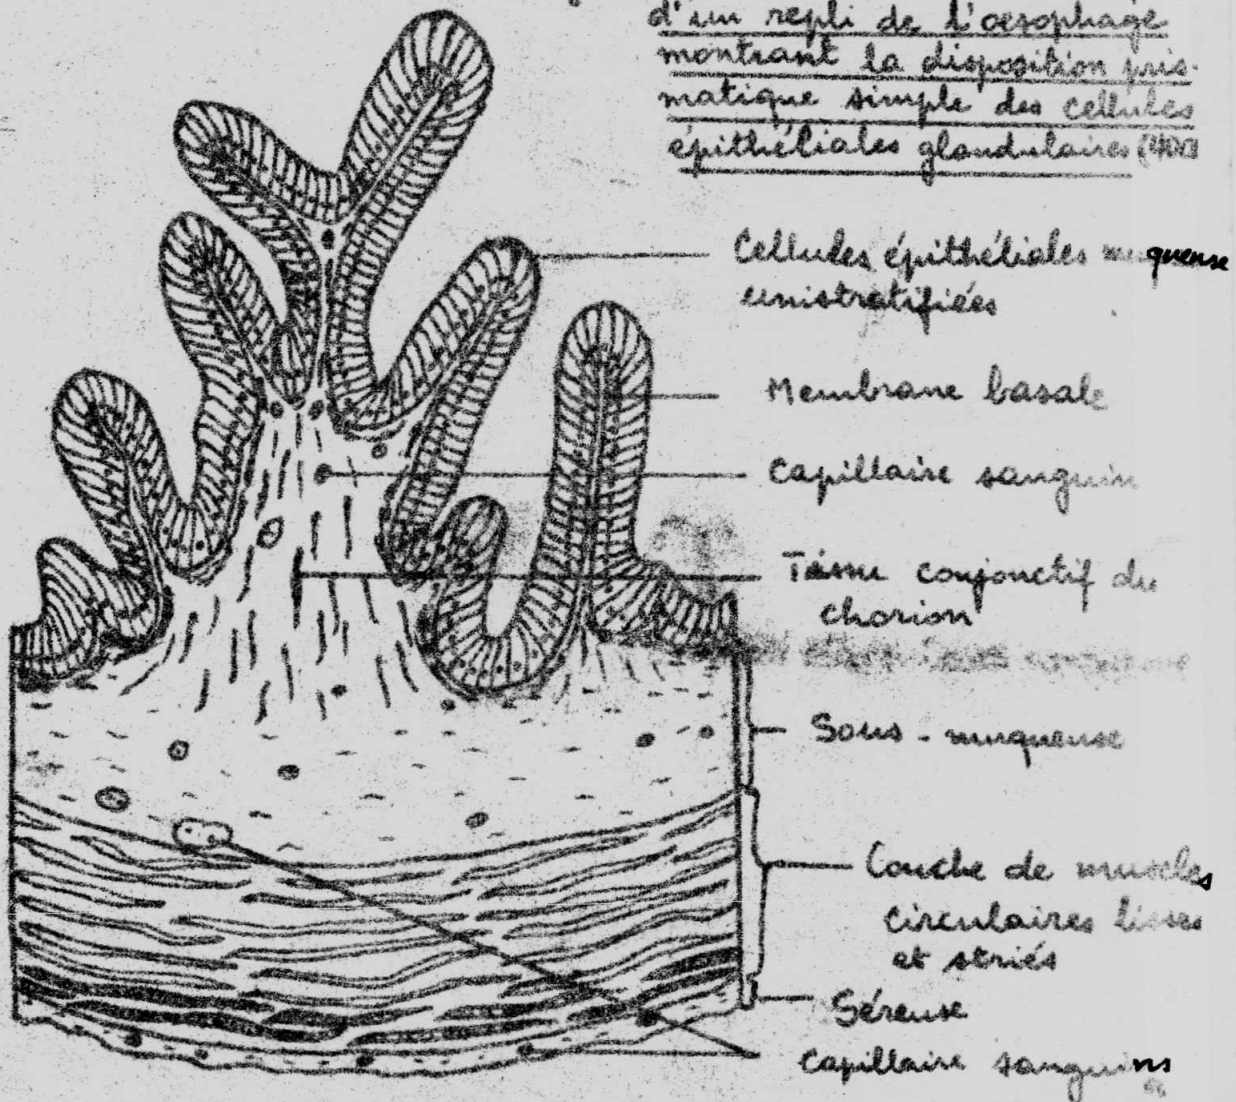 d'un repli de l'oesophage
montrant la disposition pris-
matique simple des cellules
épithéliales glandulaires (400
Cellules épithéliales muqueuse
unistratifiées
Membrane basale
Capillaire sanguin
Tissu conjonctif du
chorion
Sous-muqueuse
Couche de muscles
circulaires lisses
et striés
Séreuse
Capillaire sanguins